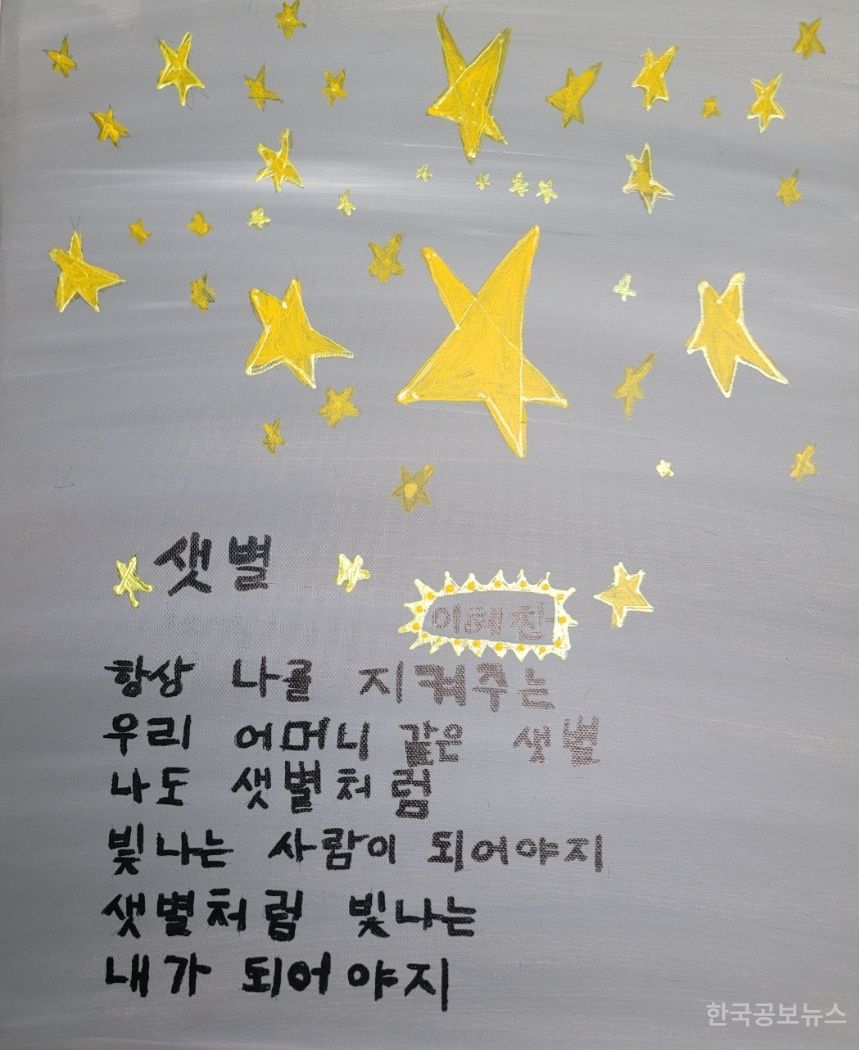 샛별
이혜찬
항상 나를 지켜주는
우리 어머니 같은 샛별
나도 샛별처럼
빛나는 사람이 되어야지
샛별처럼 빛나는
내가 되어야지
한국공보뉴스